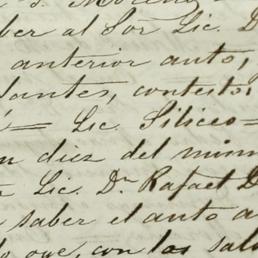 S. Moreno
ber al Sor Lic. D
anterior auto,
antes, contestó:
= Lic. Siliceo =
n diez del mism
Lic. Dn Rafael D
saber el auto a
que, con las sal